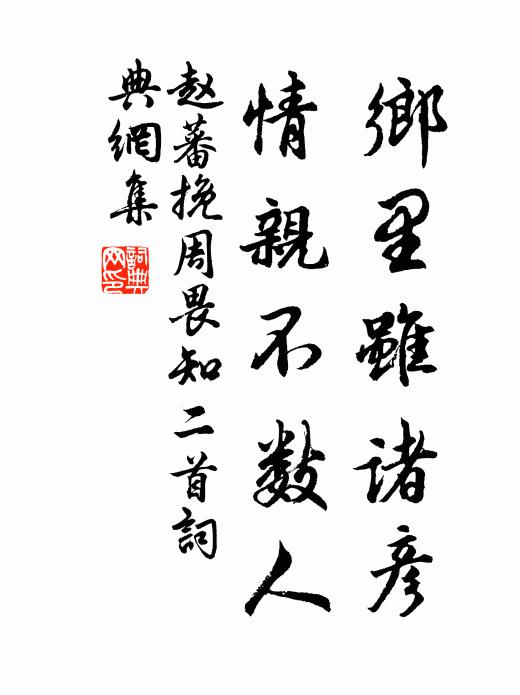 鄉里雖諸彥
情親不數人
赵蕃挽周畏知二首詞
典網集
詞典
网印